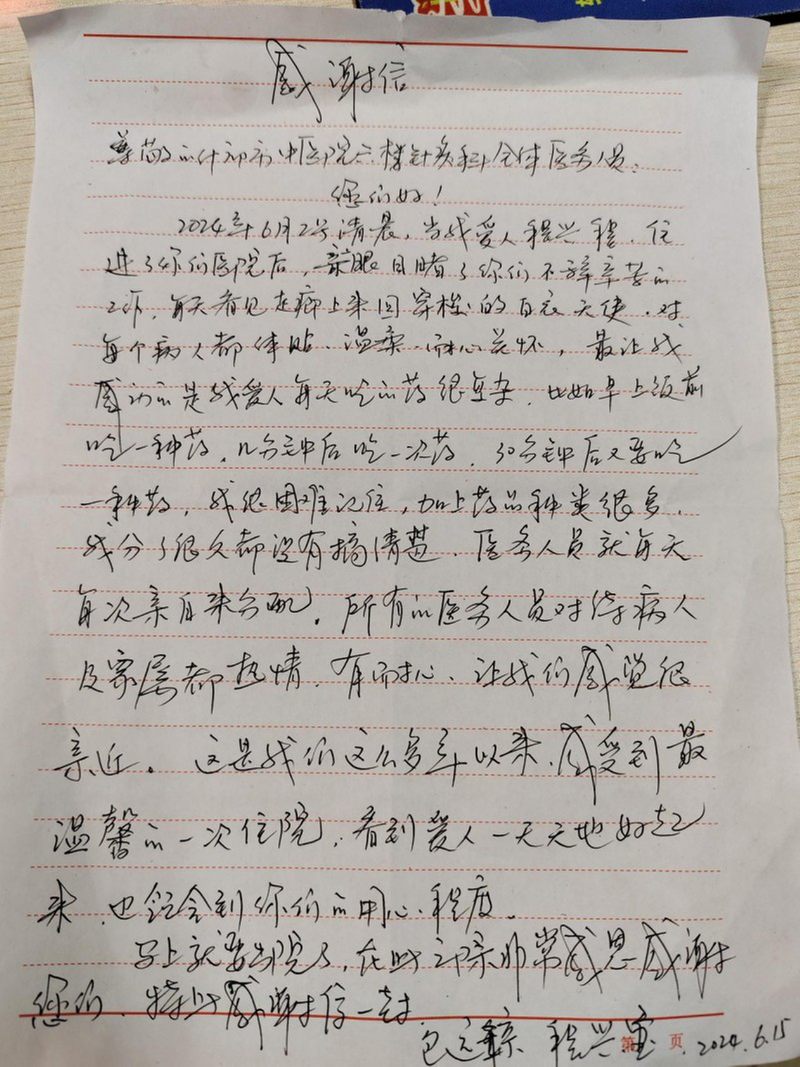 感谢信
尊敬的什邡市中医院六楼针灸科全体医务人员:
您们好!
2024年6月2号清晨,当我爱人程兴 住
进了你们医院后,亲眼目睹了你们不辞辛苦的
工作,每天看见走廊上来回穿梭的白衣天使,对
每个病人都体贴、温柔、耐心关怀,最让我
感动的是我爱人每天吃的药很复杂,比如早上饭前
吃一种药,几分钟后吃一次药,30分钟后又要吃
一种药,我很困难记住,加上药品种类很多,
我分了很久都没有搞清楚,医务人员就每天
每次亲自来分配,所有的医务人员对待病人
及家属都热情,有耐心,让我们感觉很
亲近。这是我们这么多年以来,感受到最
温馨的一次住院,看到爱人一天天地好起
来,也领会到你们的用心程度。
马上就要出院了,在此 非常感恩感谢
您们,特此感谢信一封
包 程兴 2024.6.15
第 页